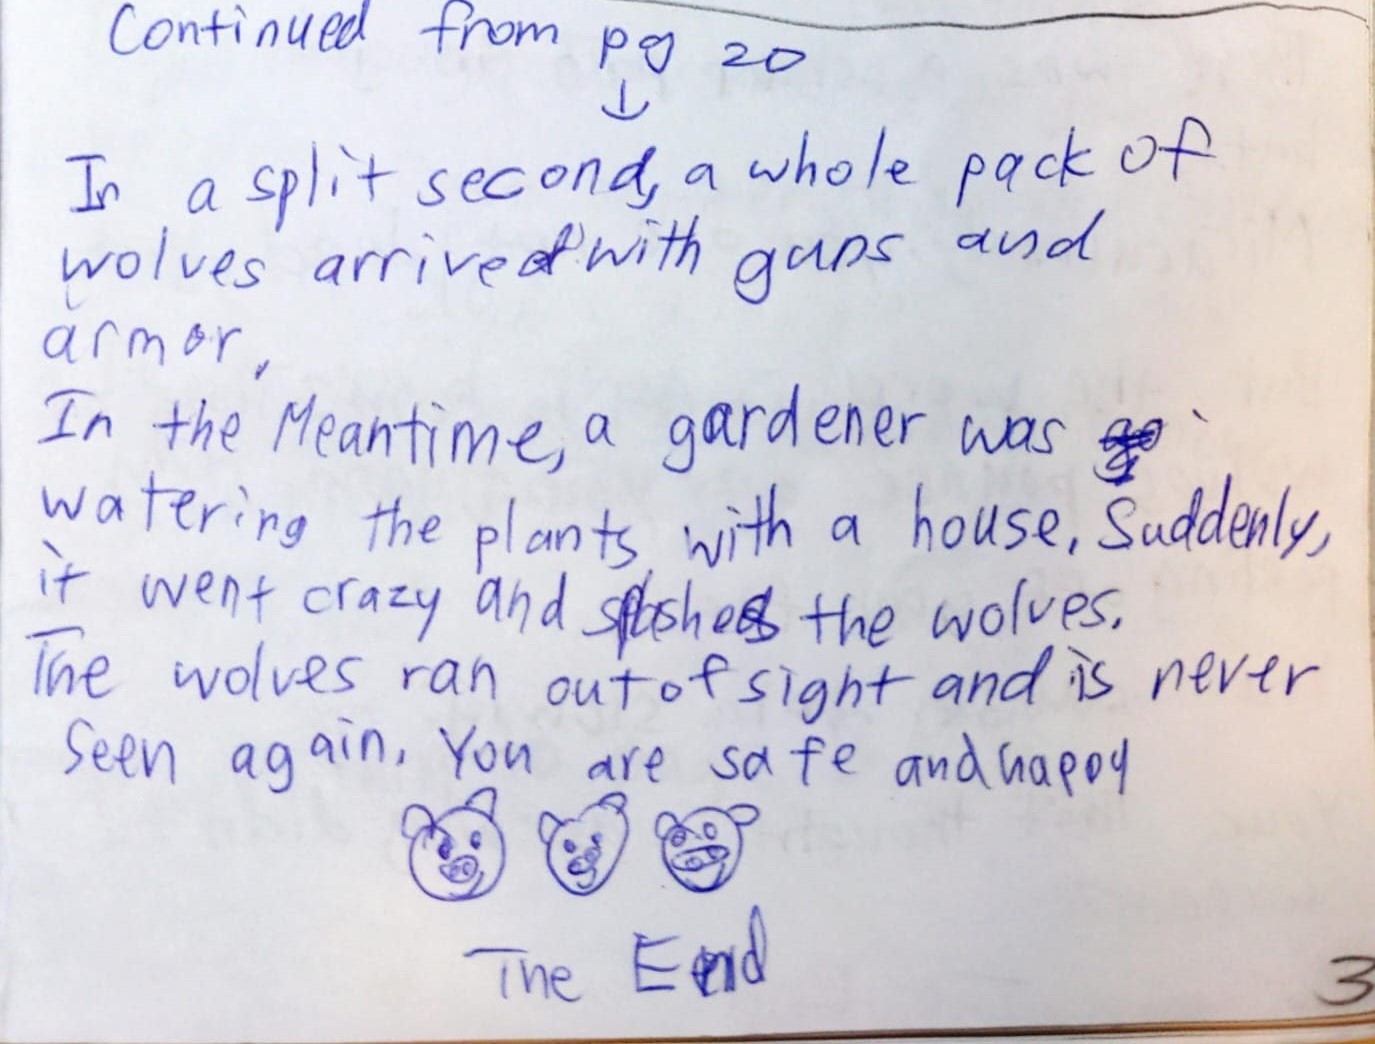 Continued from pg 20
↓
In a split second, a whole pack of
wolves arrived with guns and
armor.
In the Meantime, a gardener was
watering the plants with a house. Suddenly,
it went crazy and splashed the wolves.
The wolves ran out of sight and is never
seen again. You are safe and happy
The End
3